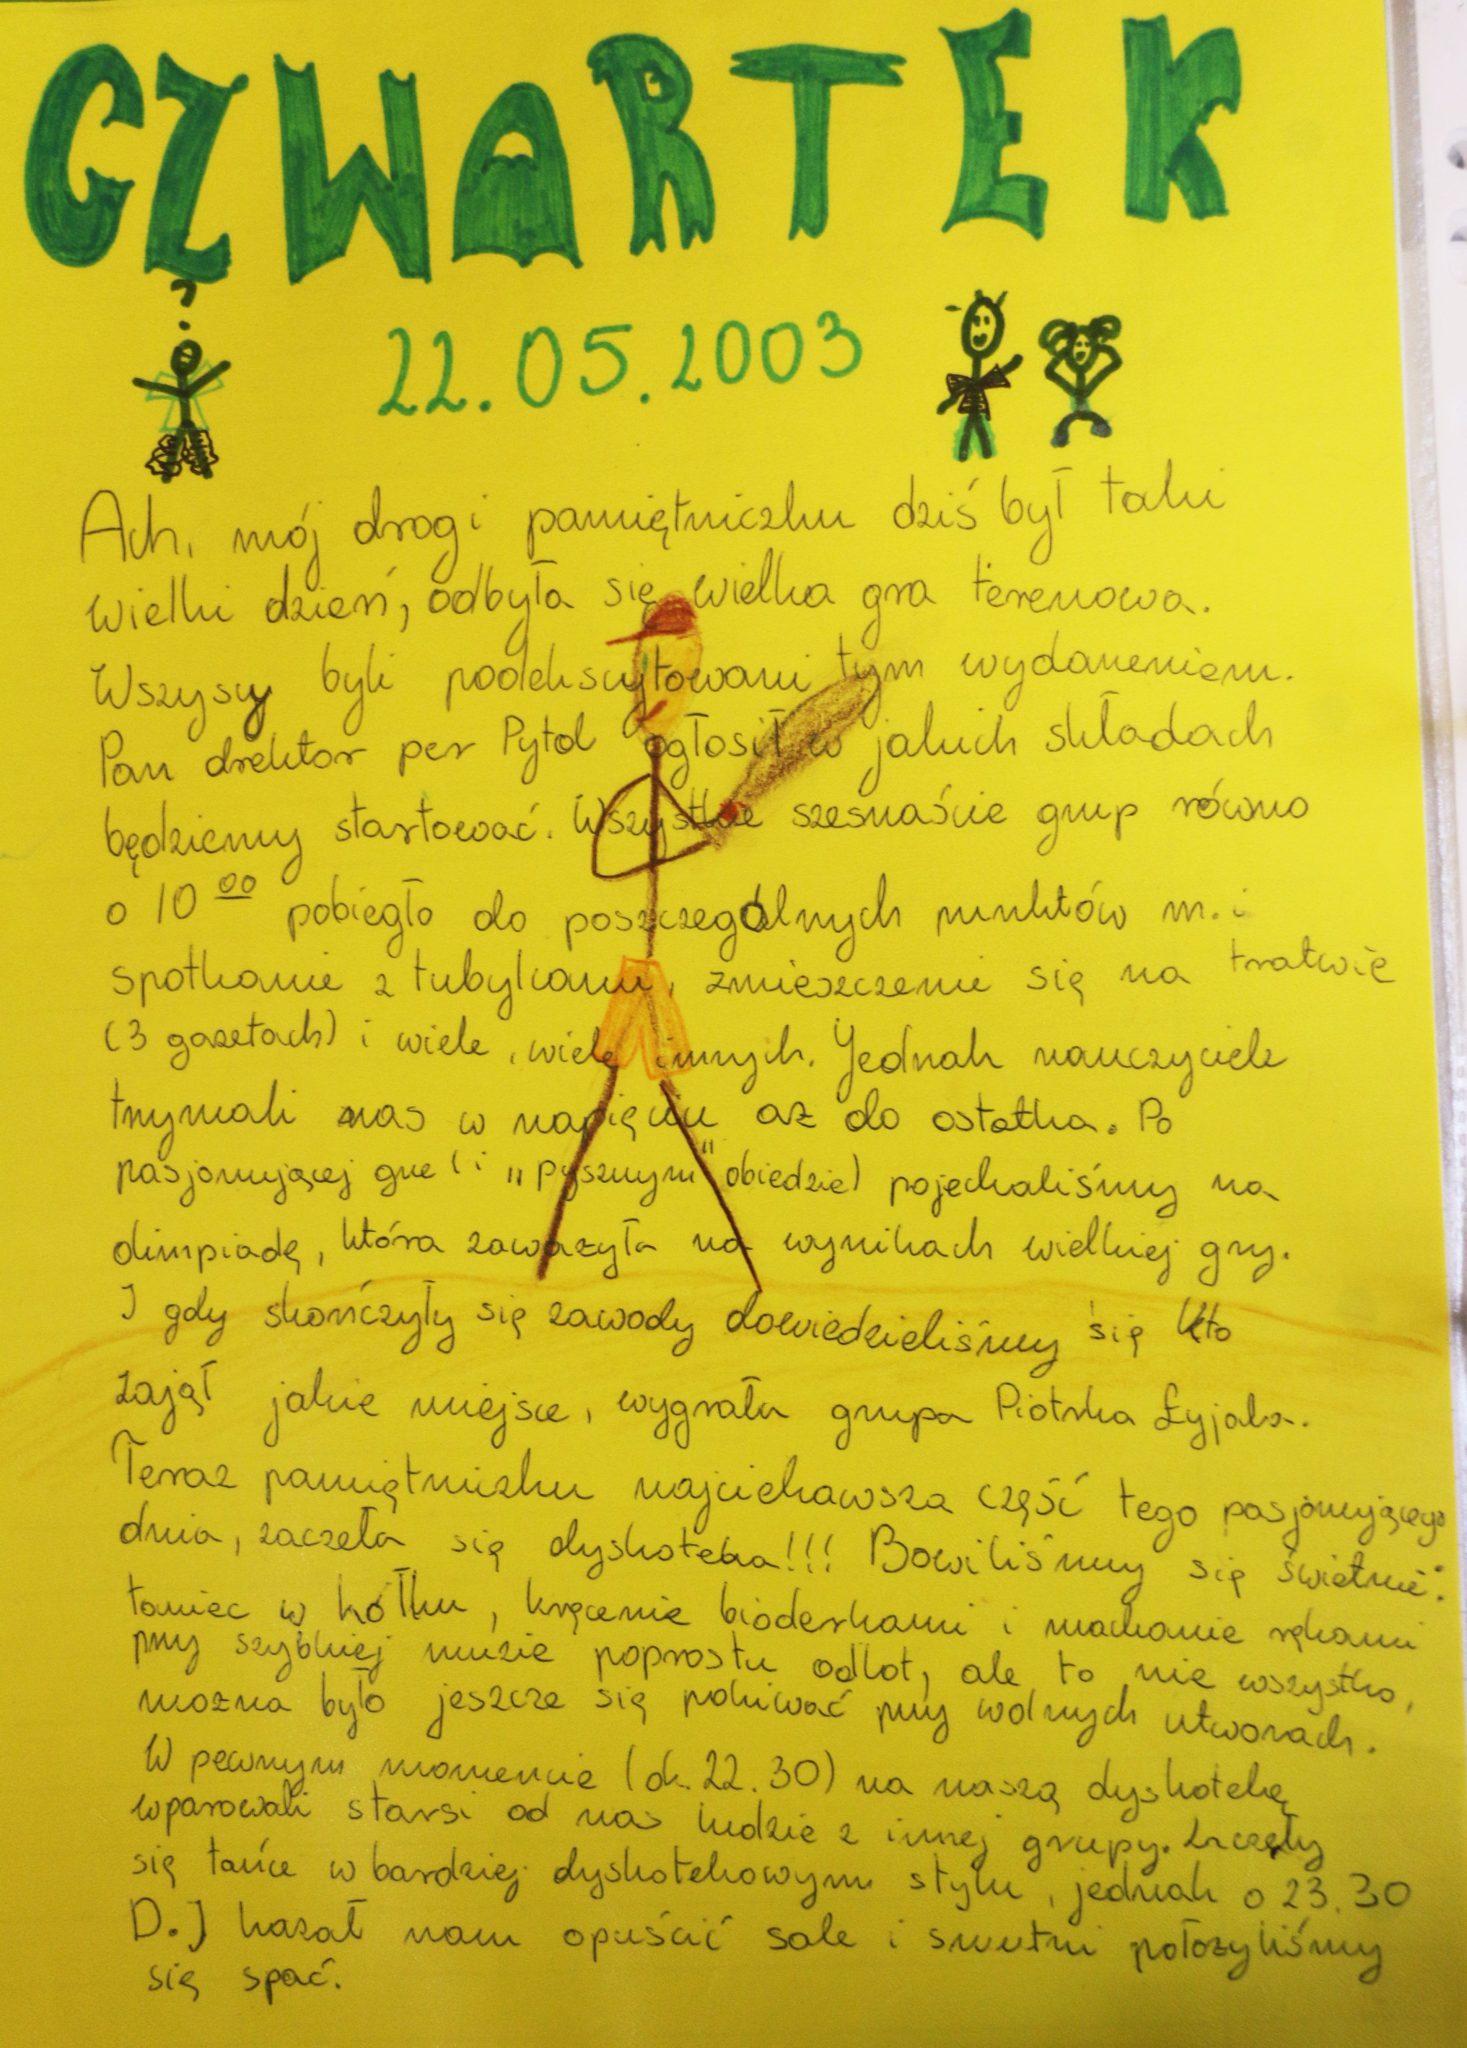 CZWARTEK
?
22.05.2003
Ach, mój drogi pamiętniczku dziś był taki
wielki dzień, odbyła się wielka gra terenowa.
Wszyscy byli podekscytowani tym wydarzeniem.
Pan drektor per Pytol ogłosił w jakich składach
będziemy startować. Wszystkie szesnaście grup równo
o 10 00 pobiegło do poszczególnych punktów m. i
spotkanie z tubylcami, zmieszczenie się na tratwie
(3 gazetach) i wiele, wiele innych. Jednak nauczyciele
trzymali nas w napięciu aż do ostatka. Po
pasjonującej grze (i „pysznym" obiedzie) pojechaliśmy na
olimpiadę, która zaważyła na wynikach wielkiej gry.
I gdy skończyły się zawody dowiedzieliśmy się kto
zajął jakie miejsce, wygrała grupa Piotrka Łyjaka.
Teraz pamiętniczku najciekawsza część tego pasjonującego
dnia, zaczeła się dyskoteka!!! Bawiliśmy się świetnie:
taniec w kółku, kręcenie bioderkami i machanie rękami
przy szybkiej muzie poprostu odlot, ale to nie wszystko,
można było jeszcze się pokiwać przy wolnych utworach.
W pewnym momencie (ok. 22.30) na naszą dyskotekę
wparowali starsi od nas ludzie z innej grupy. Zaczęły
się tańce w bardziej dyskotekowym stylu, jednak o 23.30
D.J kazał nam opuścić sale i smutni położyliśmy
się spać.